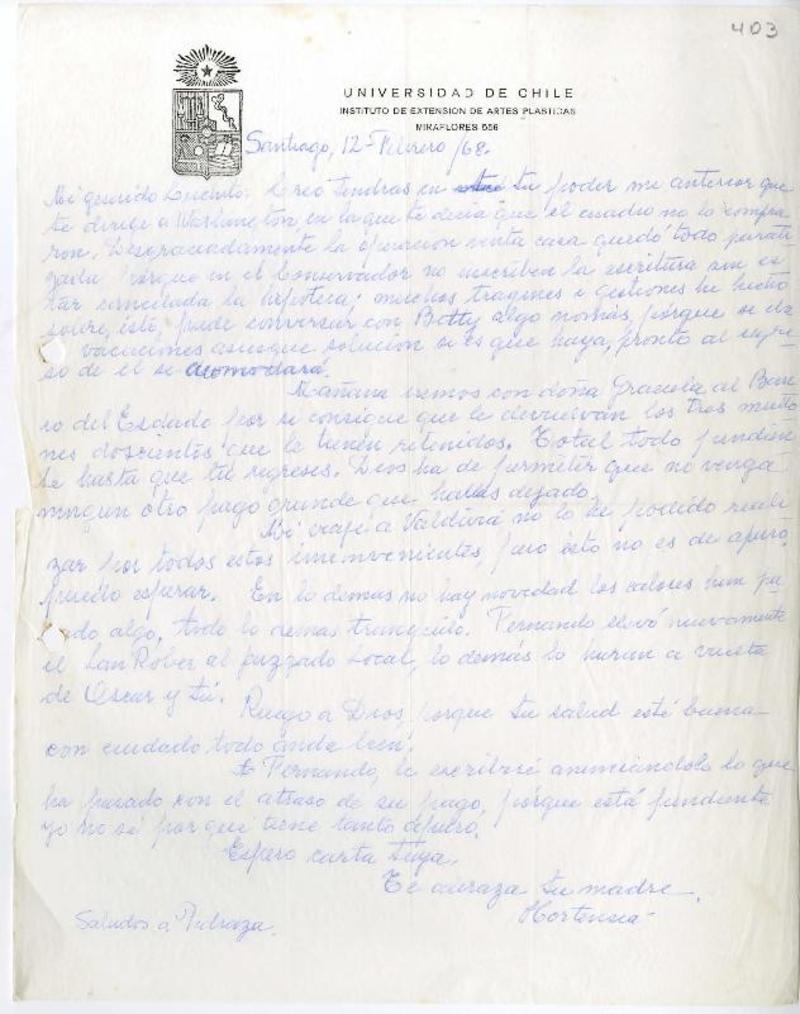 403
UNIVERSIDAD DE CHILE
INSTITUTO DE EXTENSION DE ARTES PLASTICAS
MIRAFLORES 556
Santiago, 12-Febrero/68.
Mi querido Luchito: Creo tendras en tu poder mi anterior que
te dirigí a Washington, en la que te decia que el cuadro no lo compra
ron. Desgraciadamente la operacion venta casa quedó todo parali
zada porque en el Conservador no inscriben la escritura sin es
tar cancelada la hipoteca; muchos tragines e gestiones he hecho
sobre esto, pude conversar con Betty algo nomás, porque se iba
vacaciones asique solución si es que haya, pronto al regre
so de el se acomodará.
Mañana iremos con doña Graciela al Ban
co del Esdado por si consigue que le devuelvan los tres millo
nes doscientos que le tienen retenidos. Total todo pendien
te hasta que tu regreses. Dios ha de permitir que no venga
ningun otro pago grande que hallas dejado.
Mi viaje a Valdivia no lo he podido reali
zar por todos estos inconvenientes, pero ésto no es de apuro,
puedo esperar. En lo demas no hay novedad los calores han pa
do algo, todo lo demas tranquilo. Fernando llevó nuevamente
el San Rober al juzgado Local, lo demás lo haran a vuelta
de Oscar y tú.
Ruego a Dios, porque tu salud esté buena
con cuidado todo anda bien.
A Fernando, le escribiré anunciándole lo que
ha pasado con el atraso de su pago, porque está pendiente
yo no sé por qué tiene tanto apuro.
Espero carta tuya.
Te abraza tu madre.
Hortensia-
Saludos a Pedraza.